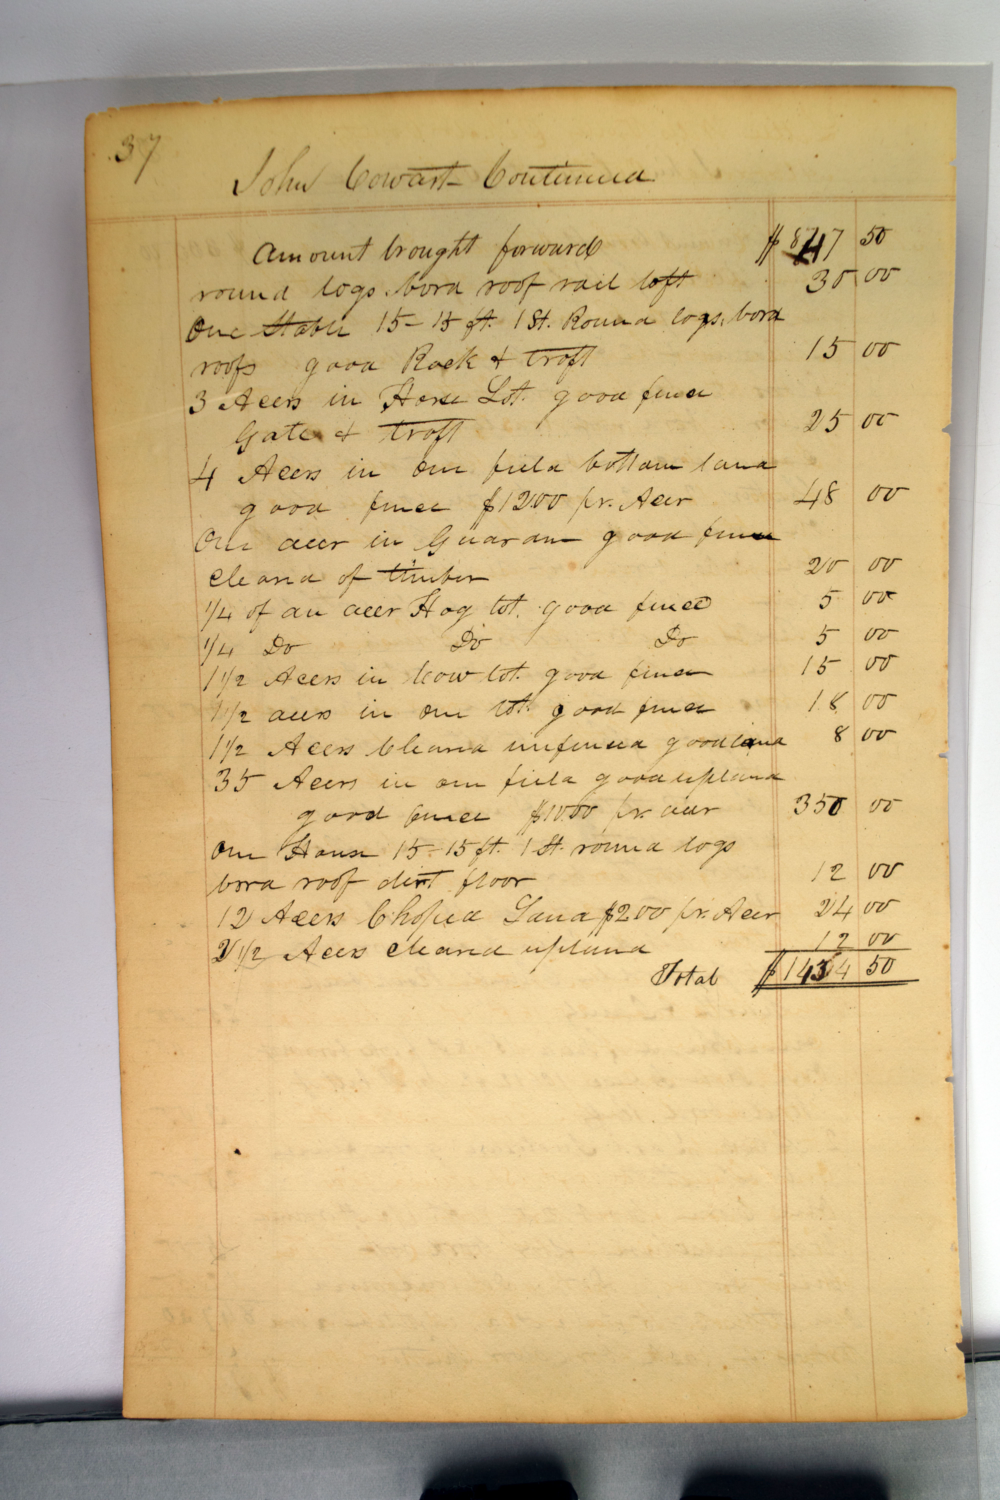 37
John Cowart Continued
Amount brought forward $ 847 50
round logs bord roof rail loft 30 00
One Stable 15-15 ft. 1 St. Round logs, bord
roofs good Rack & troft 15 00
3 Acers in Horse Lot. good fence
Gate & troft 25 00
4 Acers in one field bottom land
good fence $1200 pr. Acer 48 00
One acer in Guardan good fence
cleared of timber 20 00
1/4 of an acer Hog lot. good fence 5 00
1/4 Do Do Do 5 00
1 1/2 Acers in Cow lot. good fence 15 00
1 1/2 acers in one lot. good fence 18 00
1 1/2 Acers Cleared unfenced good land 8 00
35 Acers in one field good upland
good fence $1000 pr. acer 350 00
One House 15-15 ft. 1 St. round logs
bord roof dirt floor 12 00
12 Acers Choped Land $200 pr. Acer 24 00
2 1/2 Acers cleared upland 12 00
Total $1434 50